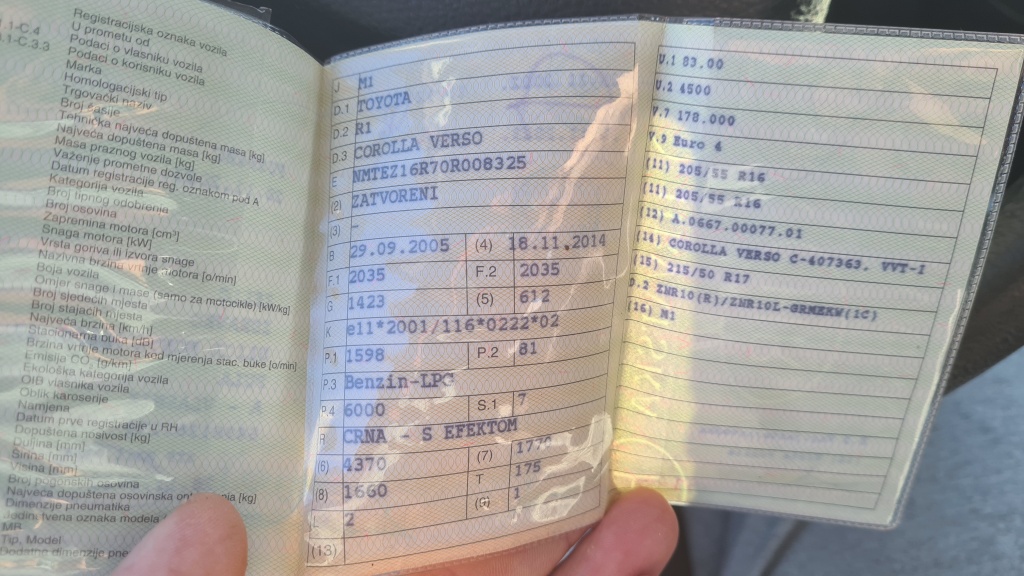 .1-C.4
.1-C.3.3
Registracijska oznaka vozila
U prometu od
Podaci o vlasniku vozila
Podaci o korisniku vozila
Marka
Homologacijski tip
Trgovački naziv
Broj šasije
Tehnička najveća dopuštena masa [kg]
Najveća dopuštena masa [kg]
Masa praznog vozila [kg]
Važenje prometne dozvole
Datum registracije reg. oznakom pod A
Kategorija vozila
Broj tipnog odobrenje
Broj osovina
Zapremina motora [cm³]
Snaga motora [kW]
Vrsta goriva ili izvora snage
Nazivna brzina vrtnje motora [o/min]
Boja vozila
Omjer snage i mase (samo za motocikle) [kW/kg]
Broj sjedećih mjesta
Broj stajaćih mjesta
Najveća brzina [km/h]
Stacionarna buka [dB]
Brzina vrtnje motora kod mjerenja stac. buke [o/min]
Emisija CO₂ [g/km]
Ekološka kategorija vozila
OIB vlasnika vozila
Oblik karoserije
Namjena
Datum prve registracije u RH
Dopuštena nosivost [kg]
Duljina [mm]
Širina [mm]
Visina [mm]
Broj pogonskih osovina
Najveća dopuštena osovinska [kg]
Dimenzije pneumatika
oznaka modela
MB
Tip, Model
Dodatne dimenzije
J M1
D.1 TOYOTA
D.2 R1
D.3 COROLLA VERSO
E NMTEZ16R70R008325
(2) ZATVORENI
(3) -
B 29.09.2005 (4) 18.11.2014
F.1 2035 F.2 2035
G 1423 (5) 612
K e11*2001/116*0222*02
P.1 1598 P.2 81
P.3 Benzin-LPG
P.4 6000 S.1 7
R CRNA - S EFEKTOM
(6) 4370 (7) 1770
(8) 1660 T 175
L 2 (9) 1
(13)
V.1 83.00
U.2 4500
V.7 178.000
V.9 Euro 4
(11) 205/55 R16
(11) 205/55 R16
(12) A.0667.00077.01
(14) COROLLA VERSO C-407363, VVT-I
(15) 215/50 R17
D.2 ZWR10(R)/ZNR10L-GRMEKW(1C)
(16) M1